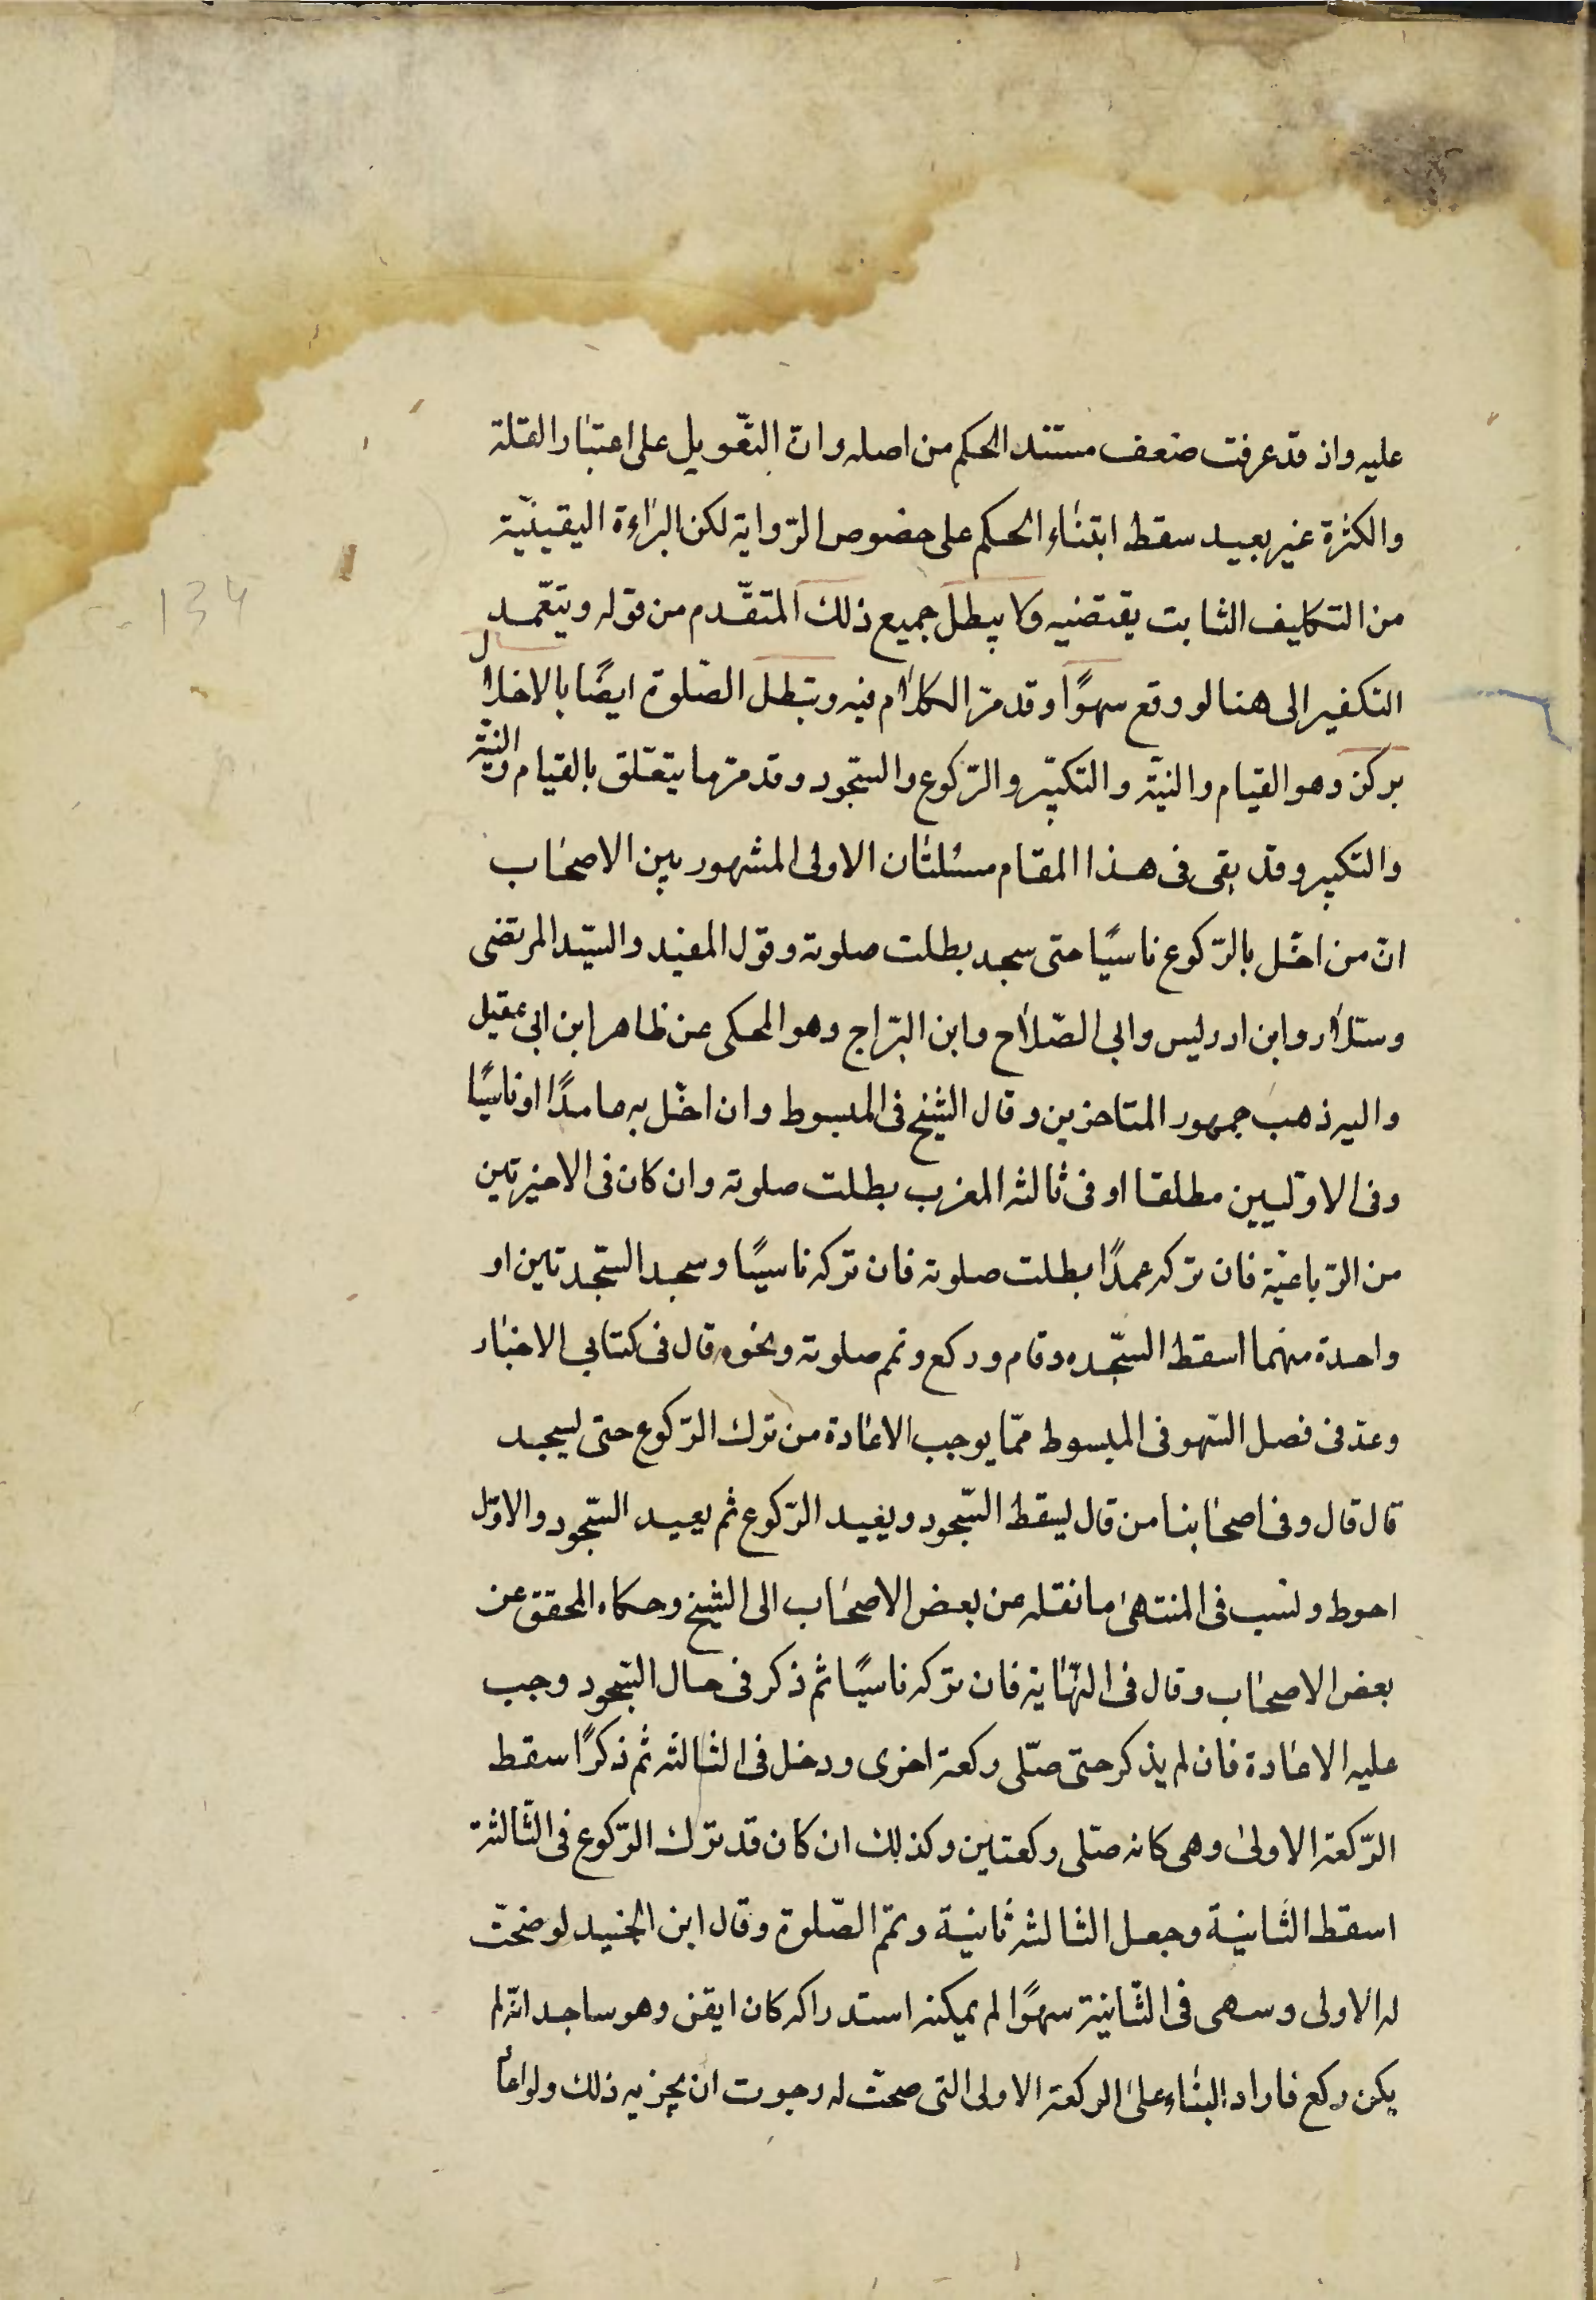 عليه واذ قد عرفت ضعف مستند الحكم من اصله وان التعويل على اعتبار القلة
والكثرة غير بعيد سقط ابتناء الحكم على خصوص الرّواية لكن البراءة اليقينيّة
من التكليف الثابت يقتضيه ولا يبطل جميع ذلك المتقدّم من قوله ويتعمّد
التكفير الى هنا لو وقع سهوًا وقد مرّ الكلام فيه وتبطل الصّلوة ايضًا بالاخلال
بركن وهو القيام والنيّة والتكبير والرّكوع والسّجود وقد مرّ ما يتعلّق بالقيام والنيّة
والتكبير وقد بقى فى هذا المقام مسئلتان الاولى المشهور بين الاصحاب
انّ من اخلّ بالرّكوع ناسيًا حتى سجد بطلت صلوته وقول المفيد والسيّد المرتضى
وسلّار وابن ادريس وابى الصّلاح وابن البرّاج وهو المحكى عن ظاهر ابن ابى عقيل
واليه ذهب جمهور المتاخرين وقال الشيخ فى المبسوط وان اخلّ به عامدًا او ناسيًا
وفى الاوّليين مطلقا او فى ثالثه المغرب بطلت صلوته وان كان فى الاخيرتين
من الرّباعيّة فان تركه عمدًا بطلت صلوته فان تركه ناسيًا وسجد السّجدتين او
واحدة منهما اسقط السّجده وقام وركع وتمم صلوته ونحوه قال فى كتابى الاخبار
وعدّ فى فصل السّهو فى المبسوط ممّا يوجب الاعادة من ترك الرّكوع حتى يسجد
قال قال وفى اصحابنا من قال يسقط السّجود ويعيد الرّكوع ثم يعيد السّجود والاوّل
احوط ونسب فى المنتهى ما نقله عن بعض الاصحاب الى الشيخ وحكاه المحقق عن
بعض الاصحاب وقال فى النّهاية فان تركه ناسيًا ثم ذكر فى حال السّجود وجب
عليه الاعادة فان لم يذكر حتى صلّى ركعة اخرى ودخل فى الثالثه ثم ذكرًا سقط
الرّكعة الاولى وهى كانه صلّى ركعتين وكذلك ان كان قد ترك الرّكوع فى الثّالثة
اسقط الثّانية وجعل الثالثه ثانية وتمّم الصّلوة وقال ابن الجنيد لو صحّت
له الاولى وسهى فى الثّانية سهوًا لم يمكنه استدراكه كان ايقن وهو ساجد انّه لم
يكن ركع فاراد البناء على الركعة الاولى التى صحّت له رجوت ان يجزيه ذلك ولو اعا